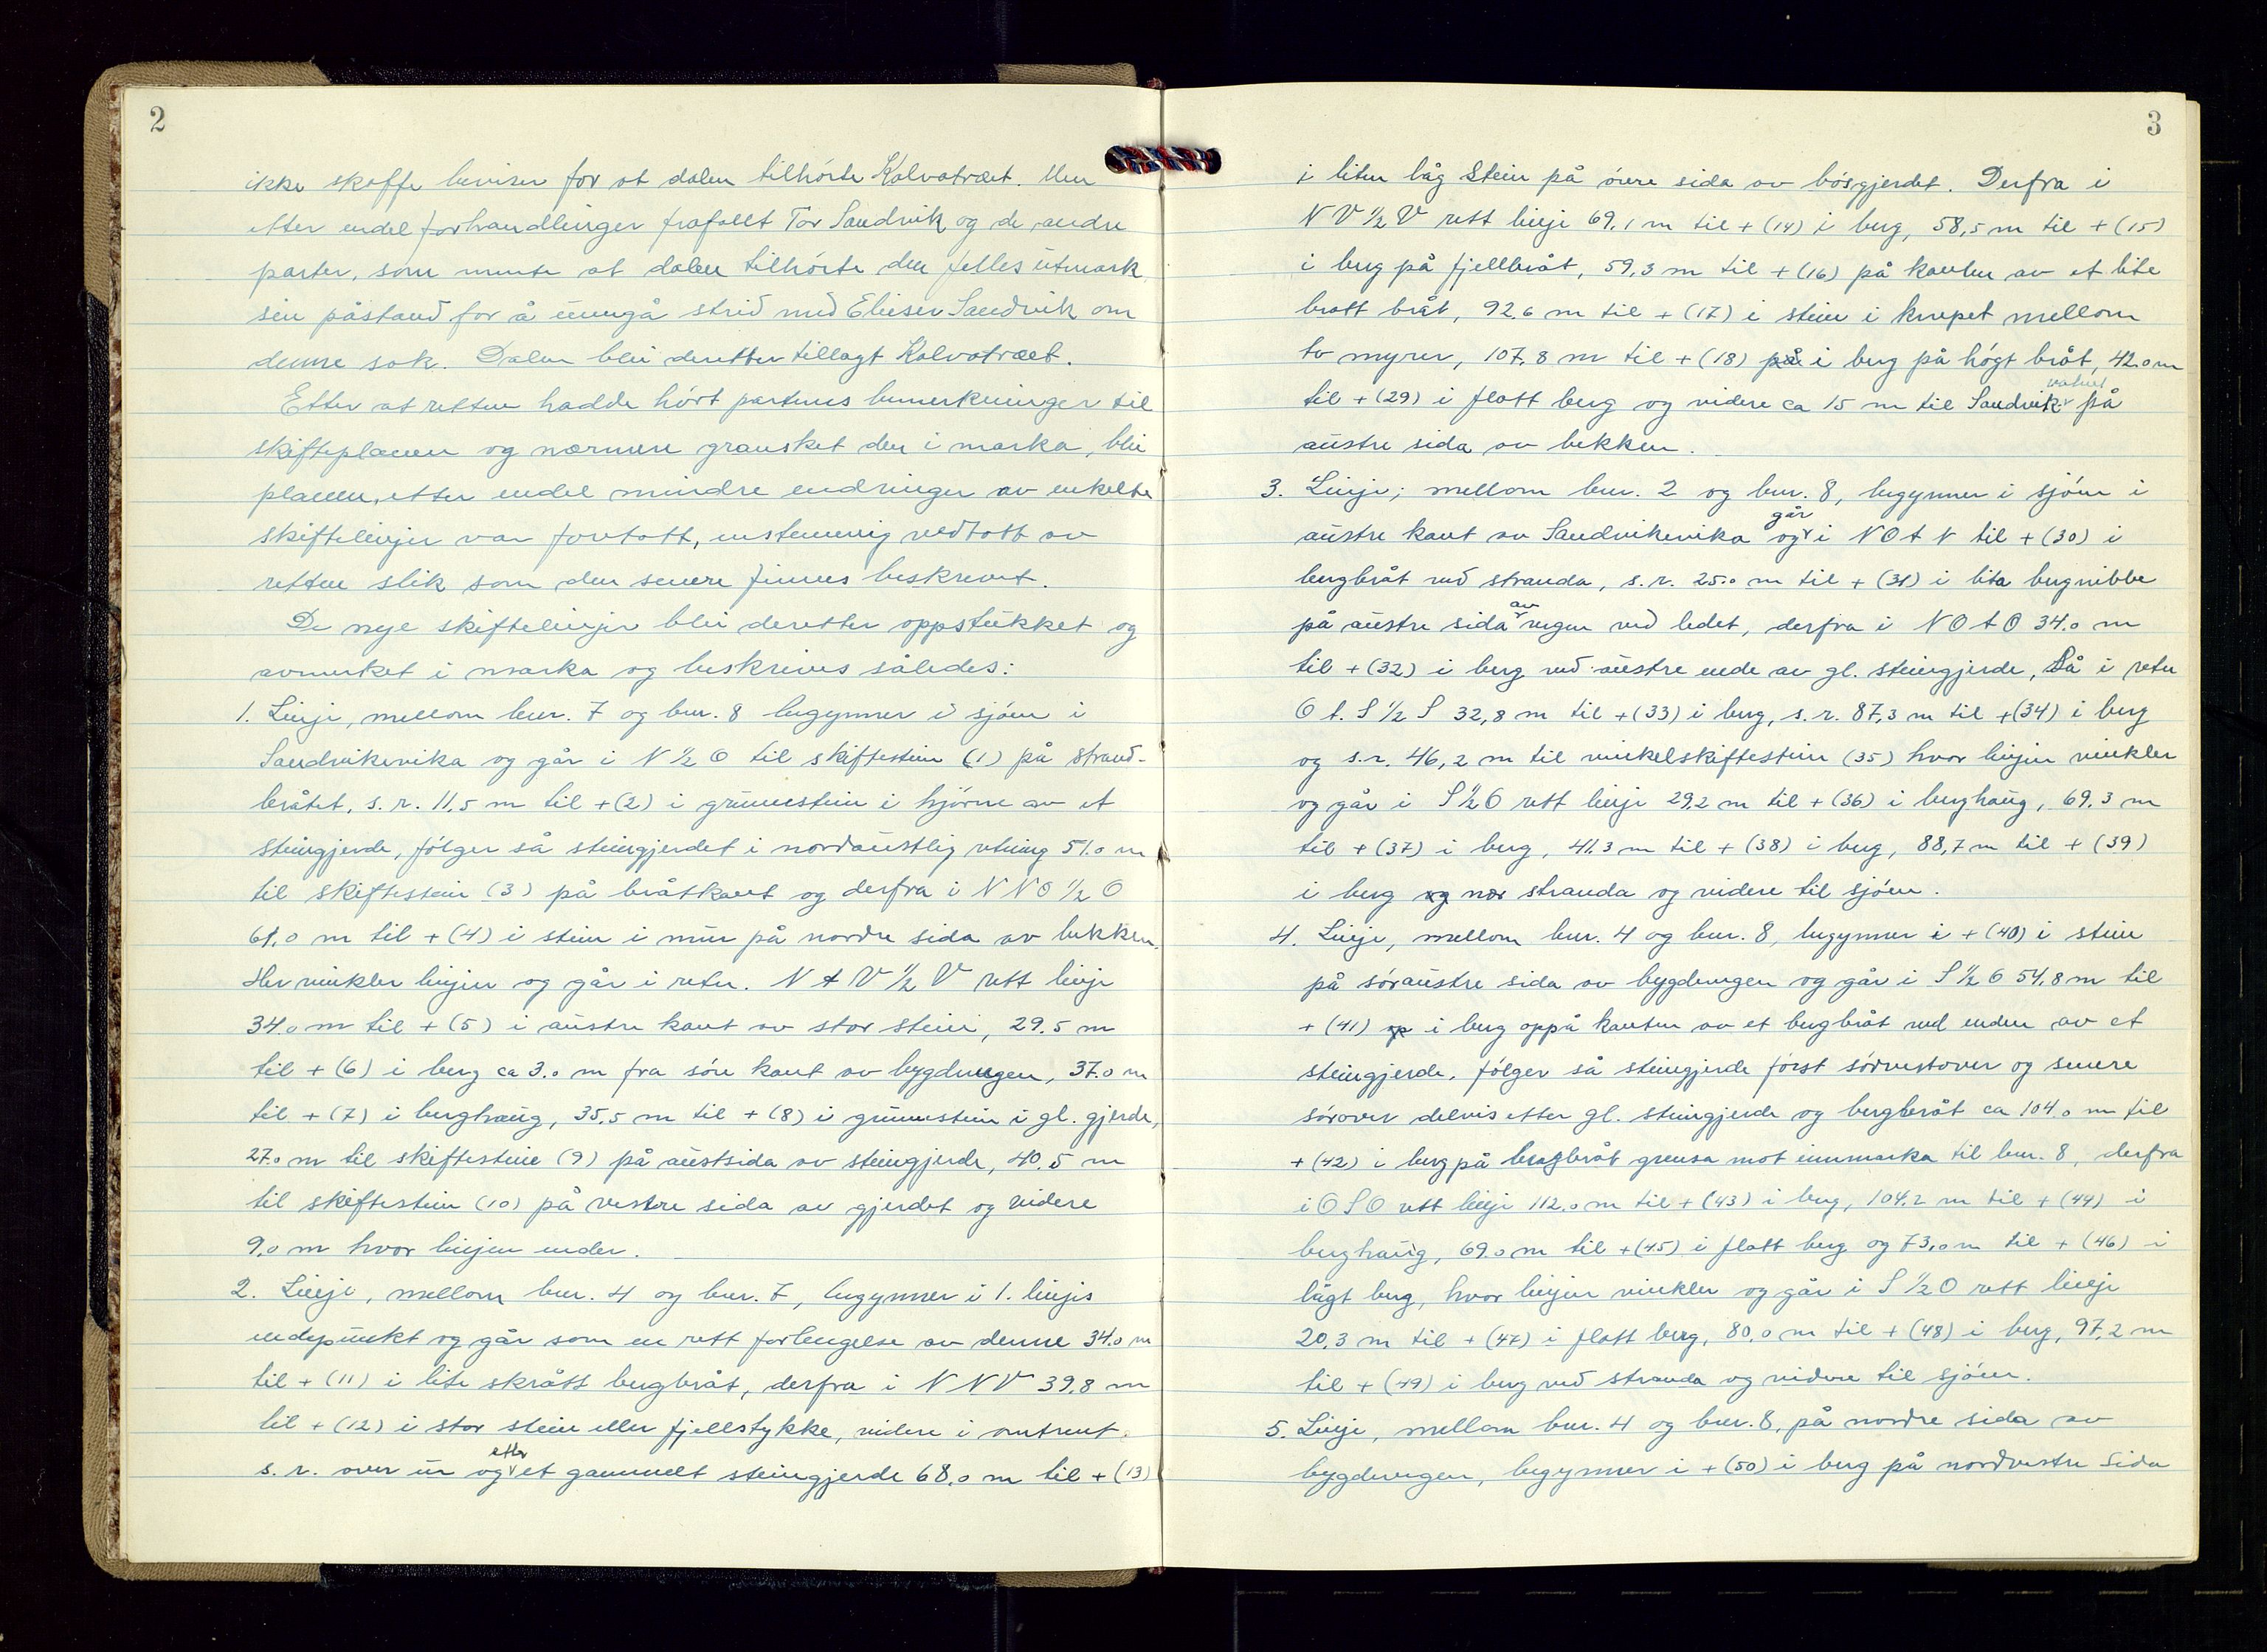 2
ikke skaffe beviser for at dalen tilhørte Kalvatræet. Men
etter endel forhandlinger frafallt Tor Sandvik og de andre
parter, som mente at dalen tilhørte den felles utmark
sin påstand for å unngå strid med Elieser Sandvik om
denne sak. Dalen blei deretter tillagt Kalvatræet.
Etter at retten hadde hørt partenes bemerkninger til
skifteplanen og nærmere gransket den i marka, blei
planen, etter endel mindre endringer av enkelte
skiftelinjer var foretatt, enstemmig vedtatt av
retten slik som den senere finnes beskrevet.
De nye skiftelinjer blei deretter oppstukket og
avmerket i marka og beskrives således:
1. Linje, mellom bnr. 7 og bnr. 8 begynner i sjøen i
Sandvikvika og går i N ½ O til skiftestein (1) på strand-
bråtet, s. r. 11,5 m til + (2) i grunnstein i hjørne av et
steingjerde, følger så steingjerdet i nordaustlig retning 51.0 m
til skiftestein (3) på bråtkant og derfra i N N O ½ O
61.0 m til + (4) i stein i mur på nordre sida av bekken.
Her vinkler linjen og går i retn. N t V ½ V rett linje
34.0 m til + (5) i austre kant av stor stein, 29.5 m
til + (6) i berg ca 3.0 m fra søre kant av bygdevegen, 37.0 m
til + (7) i berghaug, 35.5 m til + (8) i grunnstein i gl. gjerde,
27.0 m til skiftestein (9) på austsida av steingjerde, 40.5 m
til skiftestein (10) på vestre sida av gjerdet og videre
9.0 m hvor linjen ender.
2. Linje, mellom bnr. 4 og bnr. 7, begynner i 1. linjes
endepunkt og går som en rett forlengelse av denne 34.0 m
til + (11) i lite skrått bergbråt, derfra i N N V 39.8 m
til + (12) i stor stein eller fjellstykke, videre i omtrent
s. r. over ur og etter et gammelt steingjerde 68.0 m til + (13)
3
i liten låg stein på øvre sida av bøsgjerdet. Derfra i
N V ½ V rett linje 69,1 m til + (14) i berg, 58,5 m til + (15)
i berg på fjellbråt, 59,3 m til + (16) på kanten av et lite
bratt bråt, 92.6 m til + (17) i stein i knepet mellom
to myrer, 107.8 m til + (18) på i berg på høgt bråt, 42.0 m
til + (29) i flatt berg og videre ca 15 m til Sandvikvatnet på
austre sida av bekken.
3. Linje; mellom bnr. 2 og bnr. 8, begynner i sjøen i
austre kant av Sandvikvika og går i N O t N til + (30) i
bergbråt ved stranda, s. r. 25.0 m til + (31) i lita bergnibbe
på austre sida av vegen ved ledet, derfra i N O t O 34.0 m
til + (32) i berg ved austre ende av gl. steingjerde, så i retn
O t. S ½ S 32,8 m til + (33) i berg, s. r. 87,3 m til + (34) i berg
og s. r. 46,2 m til vinkelskiftestein (35) hvor linjen vinkler
og går i S ½ O rett linje 29.2 m til + (36) i berghaug, 69.3 m
til + (37) i berg, 41.3 m til + (38) i berg, 88,7 m til + (39)
i berg og nær stranda og videre til sjøen.
4. Linje, mellom bnr. 4 og bnr. 8, begynner i + (40) i stein
på søraustre sida av bygdevegen og går i S ½ O 54.8 m til
+ (41) i berg oppå kanten av et bergbråt ved enden av et
steingjerde, følger så steingjerde først sørvestover og senere
sørover delvis etter gl. steingjerde og bergbråt ca 104.0 m til
+ (42) i berg på bergbråt grensa mot innmarka til bnr. 8, derfra
i O S O rett linje 112.0 m til + (43) i berg, 104.2 m til + (44) i
berghaug, 69.0 m til + (45) i flatt berg og 73,0 m til + (46) i
lågt berg, hvor linjen vinkler og går i S ½ O rett linje
20.3 m til + (47) i flatt berg, 80,0 m til + (48) i berg, 97,2 m
til + (49) i berg ved stranda og videre til sjøen.
5. Linje, mellom bnr. 4 og bnr. 8, på nordre sida av
bygdevegen, begynner i + (50) i berg på nordvestre sida